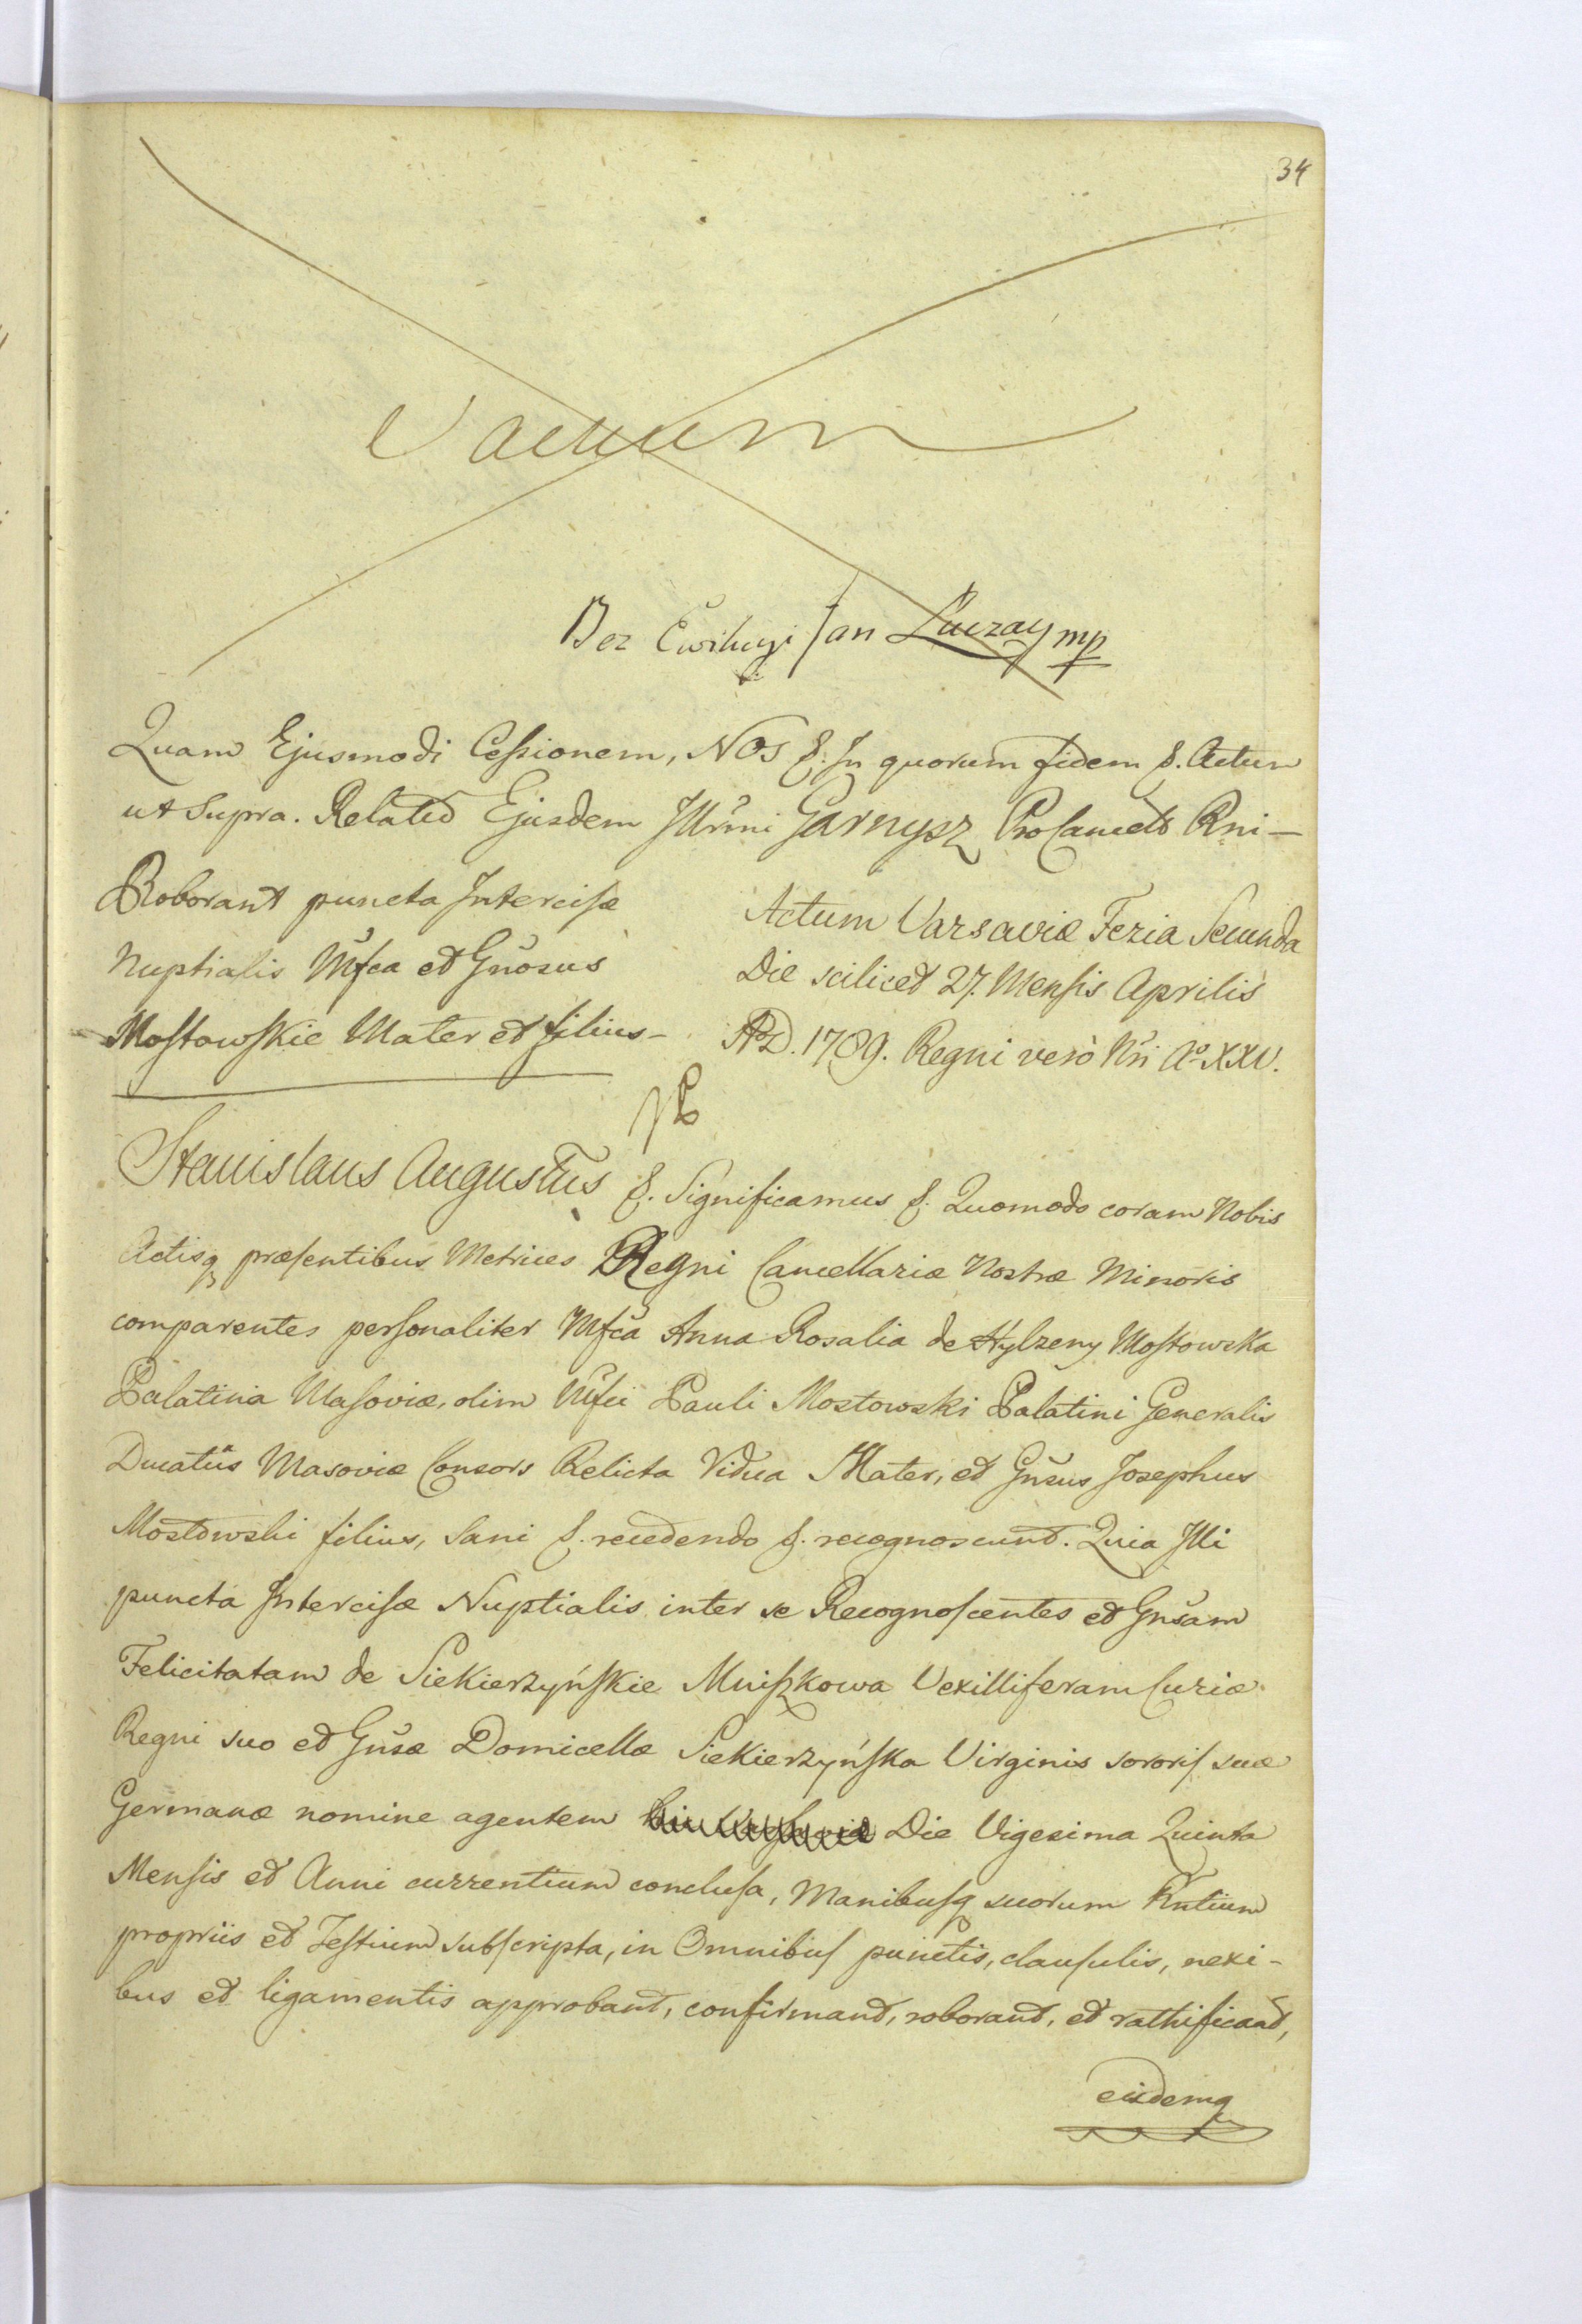 34
Vacuum
Bez Ewikcyi Jan Łuczay mp
Quam Ejusmodi Cessionem, NOS &. In quorum fidem &. Actum
ut Supra. Relatio Ejusdem Illrmi Garnysz ProCancell Rni –
Roborant puncta Intercisæ
Nuptialis Mfca et Gnosus
Mostowskie Mater et filius –
Actum Varsaviæ Feria Secunda
Die scilicet 27. Mensis Aprilis
A.D. 1789. Regni verò Nri Aº XXV.
Stanislaus Augustus &. Significamus &. Quomodo coram Nobis
Actisq præsentibus Metrices Regni Cancellariæ Nostræ Minoris
comparentes personaliter Mfca Anna Rosalia de Hylzeny Mostowska
Palatina Masoviæ, olim Mfci Pauli Mostowski Palatini Generalis
Ducatûs Masoviæ Consors Relicta Vidua Mater, et Gnsus Josephus
Mostowski filius, Sani &. recedendo &. recognoscunt. Quia Illi
puncta Intercisæ Nuptialis inter se Recognoscentes et Gnsam
Felicitatam de Siekierzyńskie Mniszkowa Vexilliferam Curiæ
Regni suo et Gnsæ Domicellæ Siekierzyńska Virginis sororis suæ
Germanæ nomine agentem Die Vigesima Quinta
Mensis et Anni currentium conclusa, Manibusq suorum Rntium
propriis et Testium subscripta, in Omnibus punctis, clausulis, nexi-
bus et ligamentis approbant, confirmant, roborant, et rathificant,
eisdemq